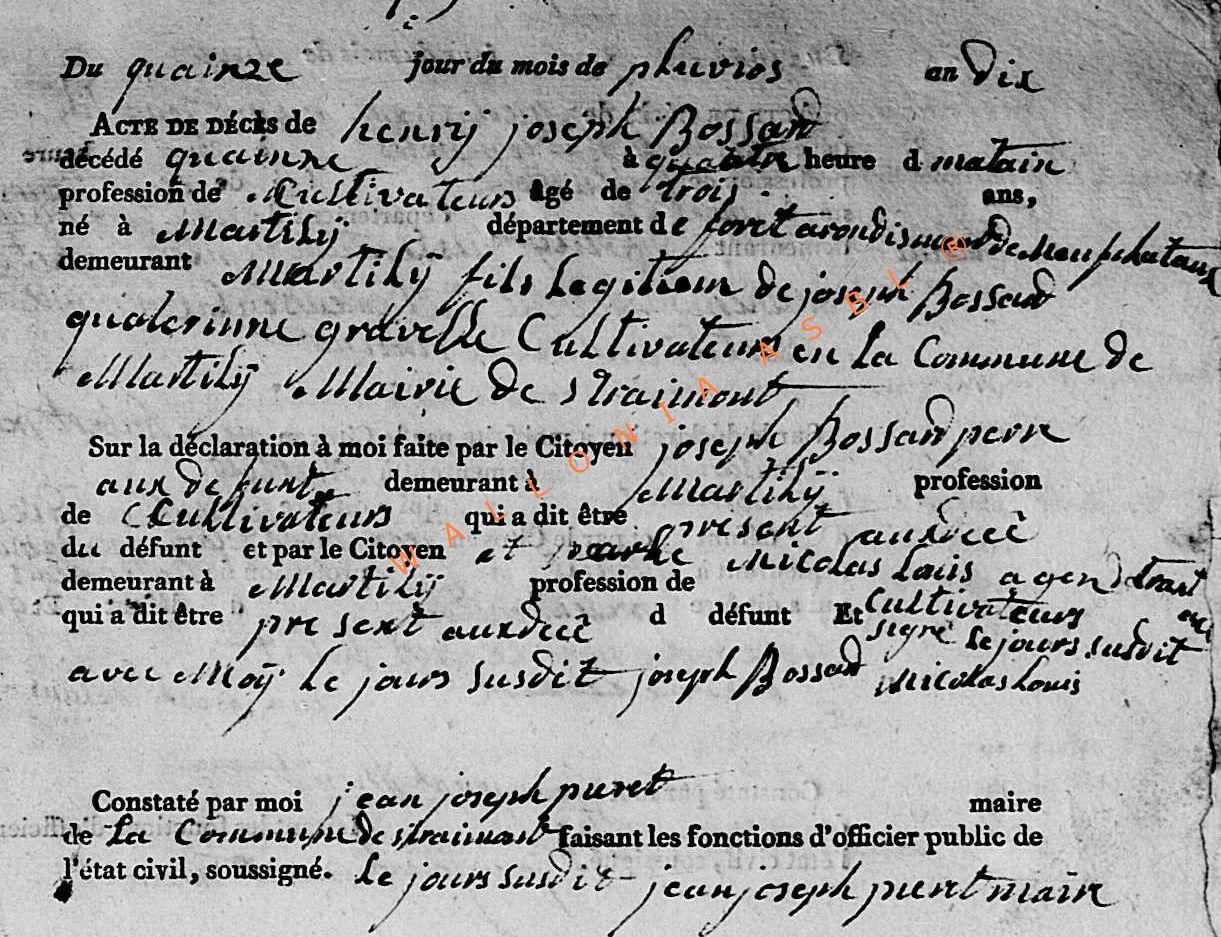 Du quainze jour du mois de pluvios an dix
ACTE DE DÉCÈS de henrÿ joseph Bossard
décédé quainze à quatre heure d matain
profession de Cultivateurs âgé de trois ans,
né à Martilÿ département de foret arondisment de Neufchataux
demeurant Martilÿ fils legitiem de joseph Bossard
qualerinne gravelle Cultivateurs en la Commune de
Martilÿ Mairie de straimont
Sur la déclaration à moi faite par le Citoyen joseph Bossard perre
aux defunt demeurant à Martilÿ profession
de Cultivateurs qui a dit être present auxdecé
du défunt et par le Citoyen et Nicolas Louis agen
demeurant à Martilÿ profession de Cultivateurs
qui a dit être present auxdecé d défunt Et signé le jours susdit
avec Moÿ le jours susdit joseph Bossard Nicolas Louis
Constaté par moi jean joseph puret maire
de la Commune de straimont faisant les fonctions d'officier public de
l'état civil, soussigné. le jours susdit jean joseph puret maire
WALLONIA ASBL ®